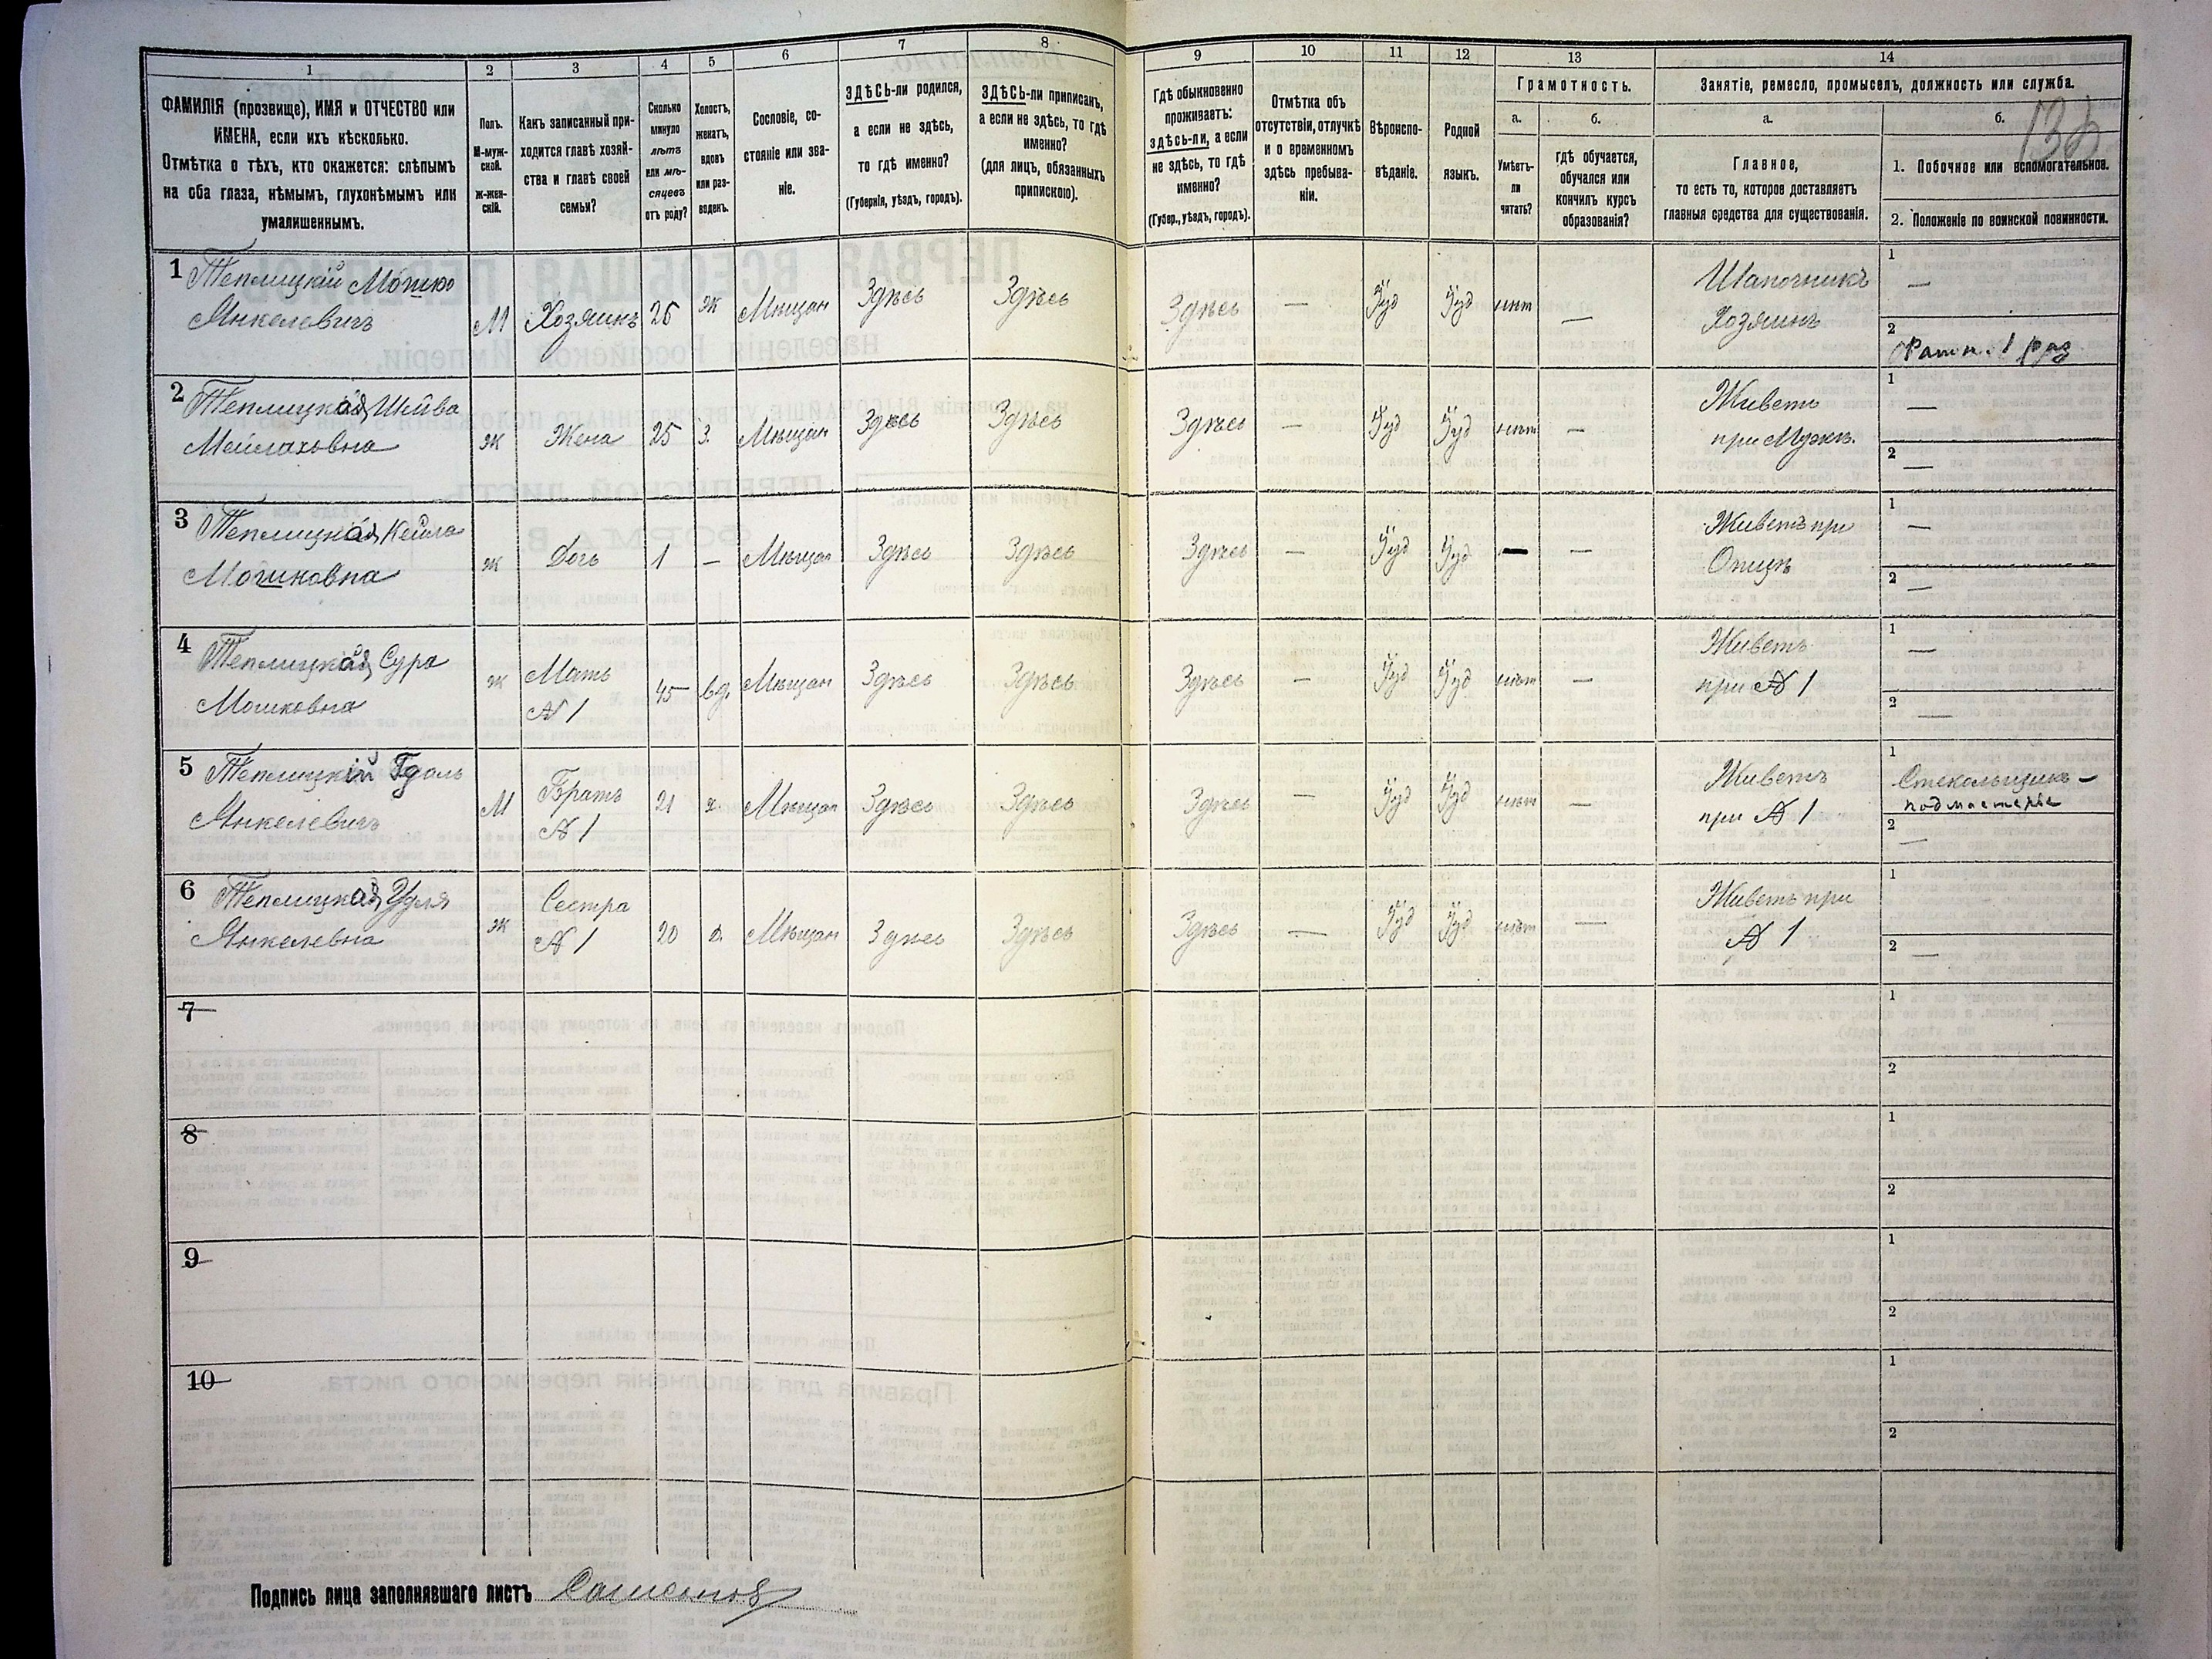 1 2 3 4 5 6 7 8 9 10 11 12 13 14
ФАМИЛІЯ (прозвище), ИМЯ и ОТЧЕСТВО или
ИМЕНА, если ихъ нѣсколько.
Отмѣтка о тѣхъ, кто окажется: слѣпымъ
на оба глаза, нѣмымъ, глухонѣмымъ или
умалишеннымъ.
Полъ.
М-муж-
ской.
Ж-жен-
скій.
Какъ записанный при-
ходится главѣ хозяй-
ства и главѣ своей
семьи?
Сколько
минуло
лѣтъ
или мѣ-
сяцевъ
отъ роду?
Холостъ,
женатъ,
вдовъ
или раз-
веденъ.
Сословіе, со-
стояніе или зва-
ніе.
ЗДѢСЬ-ли родился,
а если не здѣсь,
то гдѣ именно?
(Губернія, уѣздъ, городъ).
ЗДѢСЬ-ли приписанъ,
а если не здѣсь, то гдѣ
именно?
(для лицъ, обязанныхъ
припискою).
Гдѣ обыкновенно
проживаетъ:
здѣсь-ли, а если
не здѣсь, то гдѣ
именно?
(Губер., уѣздъ, городъ).
Отмѣтка объ
отсутствіи, отлучкѣ
и о временномъ
здѣсь пребыва-
ніи.
Вѣроиспо-
вѣданіе.
Родной
языкъ.
Грамотность.
а.
Умѣетъ-
ли
читать?
б.
гдѣ обучается,
обучался или
кончилъ курсъ
образованія?
Занятіе, ремесло, промыселъ, должность или служба.
а.
Главное,
то есть то, которое доставляетъ
главныя средства для существованія.
б.
1. Побочное или вспомогательное.
2. Положеніе по воинской повинности.
1 Теплицкій Мошко
Янкелевичъ
М Хозяинъ 26 Ж Мѣщан Здѣсь Здѣсь Здѣсь — Іуд Іуд нѣт —
Шапочникъ
Хозяинъ
1 —
2 Ратн. 1 раз
2 Теплицкая Шейва
Мейлаховна
Ж Жена 25 З. Мѣщан Здѣсь Здѣсь Здѣсь — Іуд Іуд нѣт —
Живетъ
при Мужѣ.
1 —
2 —
3 Теплицкая Кейла
Мошковна
Ж Дочь 1 — Мѣщан Здѣсь Здѣсь Здѣсь — Іуд Іуд — —
Живетъ при
Отцѣ
1 —
2 —
4 Теплицкая Сура
Мошковна
Ж Мать
№ 1
45 вд. Мѣщан Здѣсь Здѣсь Здѣсь — Іуд Іуд нѣт —
Живетъ
при № 1
1 —
2 —
5 Теплицкій Гдаль
Янкелевичъ
М Братъ
№ 1
21 х. Мѣщан Здѣсь Здѣсь Здѣсь — Іуд Іуд нѣт —
Живетъ
при № 1
1 Стекольщикъ —
подмастерье
2 —
6 Теплицкая Удля
Янкелевна
Ж Сестра
№ 1
20 д. Мѣщан Здѣсь Здѣсь Здѣсь — Іуд Іуд нѣт —
Живетъ при
№ 1
1
2 —
7
1
2
8
1
2
9
1
2
10
1
2
Подпись лица заполнявшаго листъ